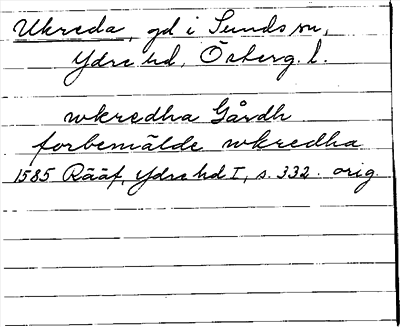 Ukreda, gd i Sunds sn,
Ydre hd, Österg. l.
wkredha Gårdh
forbemälde wkredha
1585 Rääf, Ydre hd I, s. 332. orig.